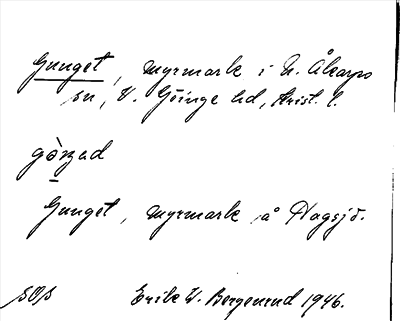 Gunget, myrmark i N. Åkarps
sn, V. Göinge hd, Krist. l.
Gunget, myrmark å Hagsjö.
SOS Erik W. Bergenrud 1946.